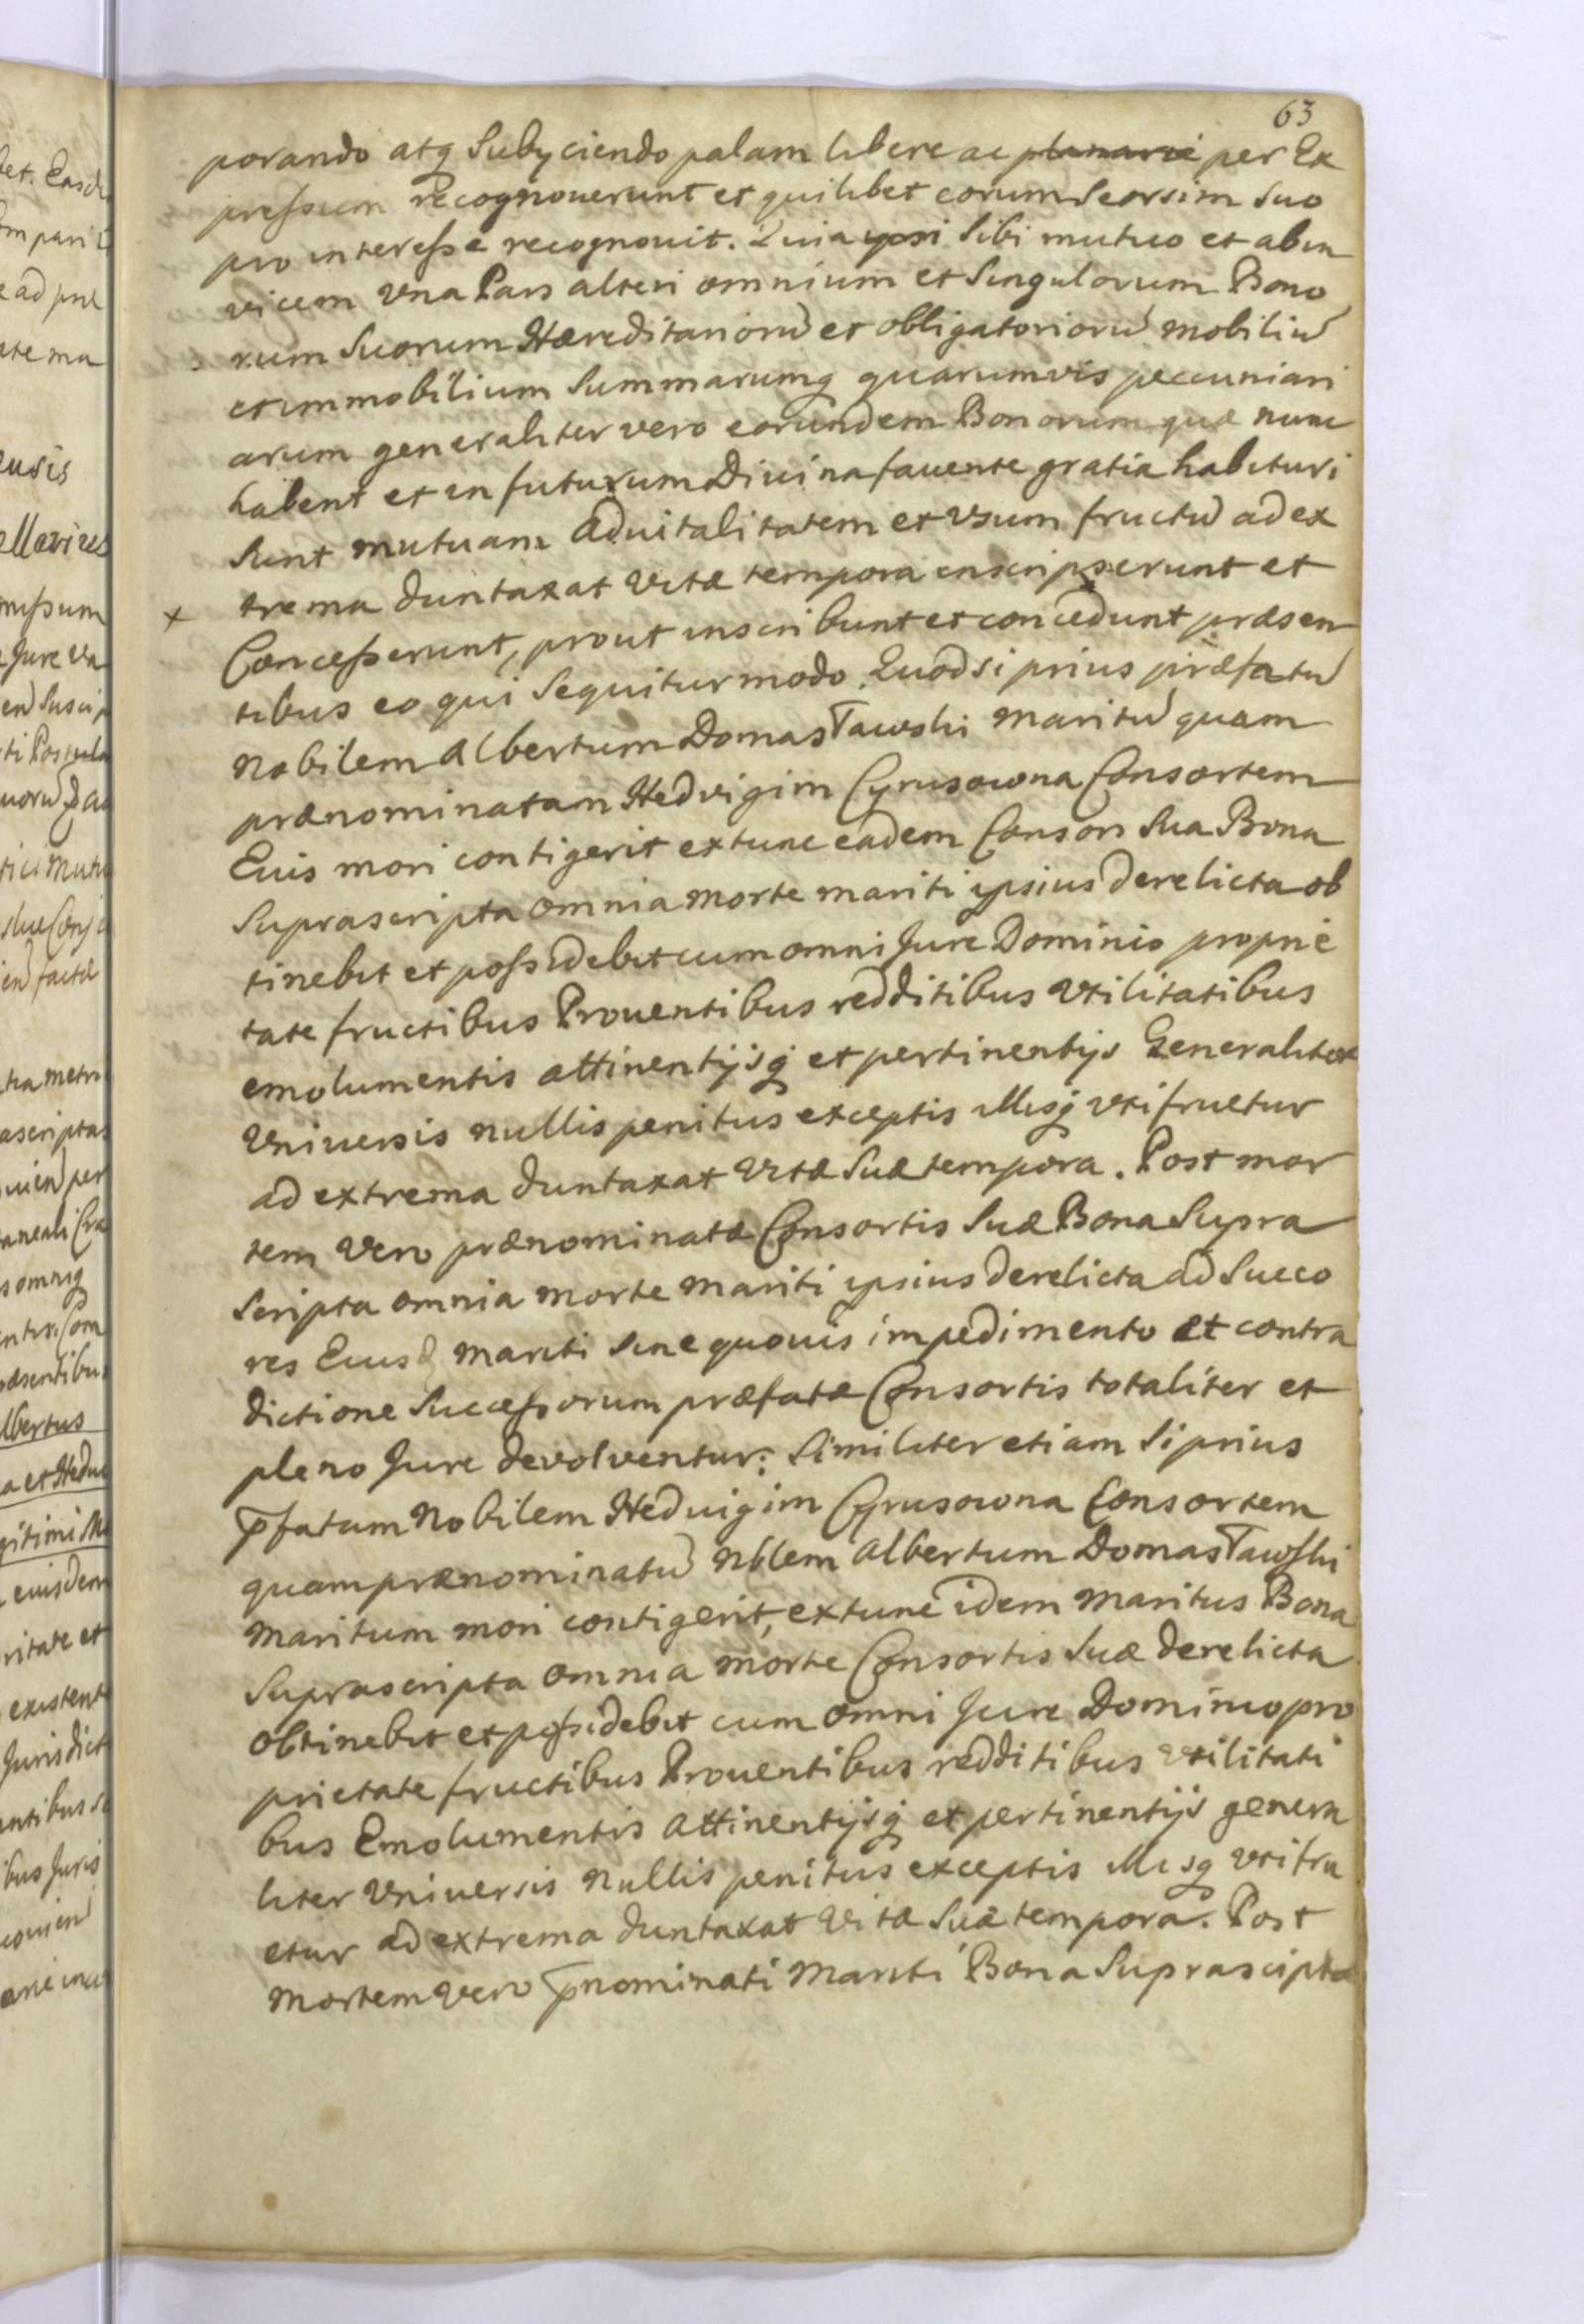 63
porando atq Subyciendo palam libere ac planarie per Ex
pressum recognouerunt et quilibet eorum Seorsim Suo
pro interesse recognouit. Quia ipsi Sibi mutuo et abin
vicem vna Pars alteri omnium et Singulorum Bono
rum Suorum Hæreditarioru et obligatorioru mobiliu
et immobilium Summarumq quarumvis pecuniari
arum generaliter vero eorundem Bonorum quæ nunc
habent et in futurum Diuina fauente gratia habituri
Sunt mutuam Aduitalitatem et vsum fructu ad ex
x trema duntaxat Vitæ tempora inscripserunt et
Concesserunt, prout inscribunt et concedunt præsen
tibus eo qui Sequitur modo. Quod si prius præfatu
Nobilem Albertum Domastawski Maritu quam
prænominatam Hedvigim Cyrusowna Consortem
Euis mori contigerit extunc eadem Consors Sua Bona
Suprascripta omnia morte mariti ipsius derelicta ob
tinebit et possidebit cum omni Jure Dominio proprie
tate fructibus Prouentibus redditibus Vtilitatibus
emolumentis attinentijsq et pertinentijs Generaliter
Vniuersis nullis penitus exceptis illisq vtifruetur
ad extrema duntaxat Vitæ Suæ tempora. Post mor
tem Vero prænominatæ Consortis Suæ Bona Supra
Scripta omnia morte mariti ipsius derelicta ad Succo
res Eiusd mariti Sine quouis impedimento et contra
dictione Successorum præfatæ Consortis totaliter et
pleno Jure devolventur; Similiter etiam Si prius
pfatam Nobilem Heduigim Cyrusowna Consortem
quam prænominatu Nblem Albertum Domastawski
Maritum mori contigerit, extunc idem Maritus Bona
Suprascripta omnia morte Consortis Suæ derelicta
obtinebit et possidebit cum omni Jure Dominio pro
prietate fructibus Prouentibus redditibus Vtilitati
bus Emolumentis Attinentijsq et pertinentijs genera
liter Vniuersis Nullis penitus exceptis illisq vtifru
etur ad extrema duntaxat Vitæ Suæ tempora. Post
Mortem vero pnominati Mariti Bona Suprascipta